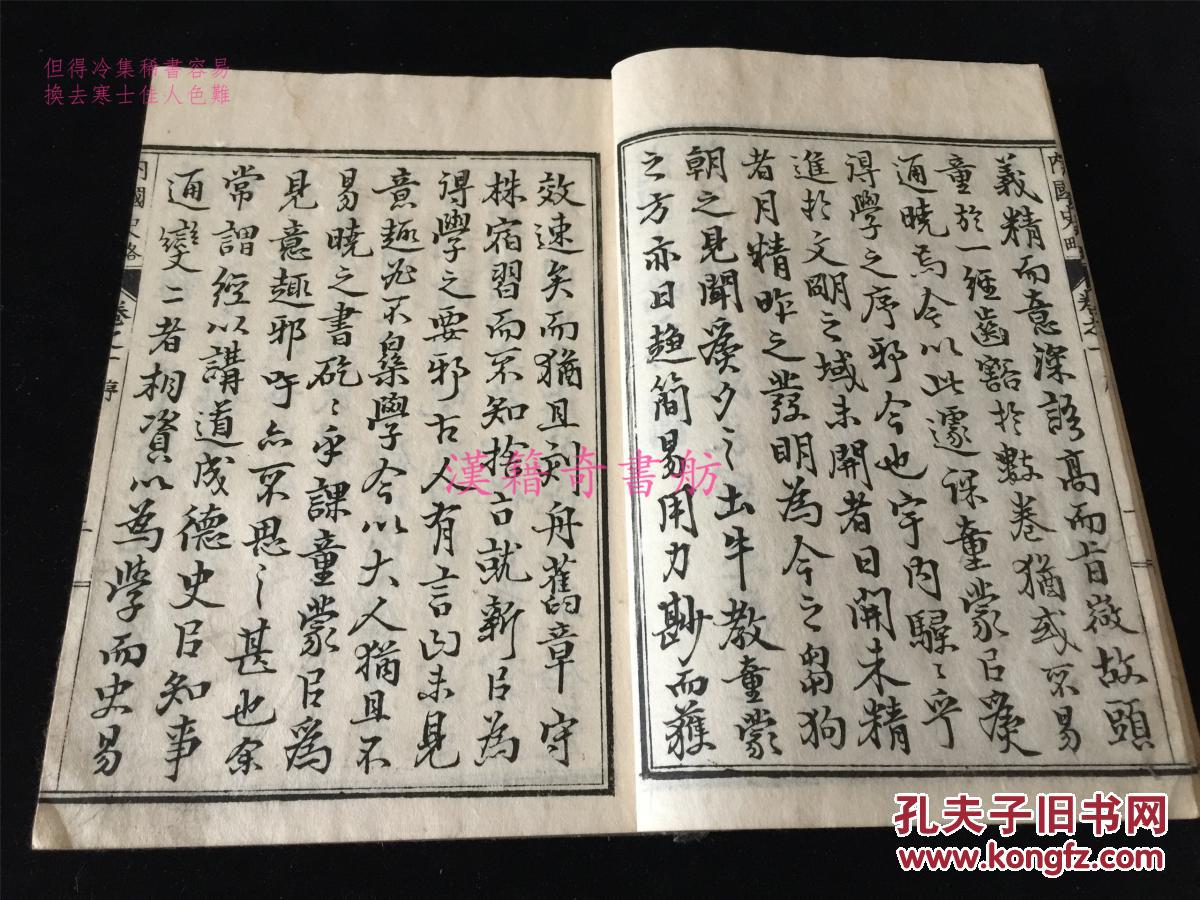 但得冷集稀書容易
換去寒士佳人色難
內國史略
卷之一
義精而意深語高而旨微故頭
童於一經齒豁於數卷猶或不易
通曉焉今以此遽課童蒙以為
得學之序邪今也宇內駸〻乎
進於文明之域未開者日開未精
者月精昨之發明為今之芻狗
朝之見聞為夕之出牛教童蒙
之方亦日趨簡易用力尠而獲
效速矣而猶且刻舟舊章守
株宿習而不知捨古就新以為
得學之要邪古人有言曰未見
意趣必不樂學今以大人猶且不
易曉之書矻〻乎課童蒙以為
見意趣邪吁亦不思之甚也余
常謂經以講道成德史以知事
通變二者相資以為學而史易
內國史略
卷之一
序
漢籍奇書舫
孔夫子旧书网
www.kongfz.com